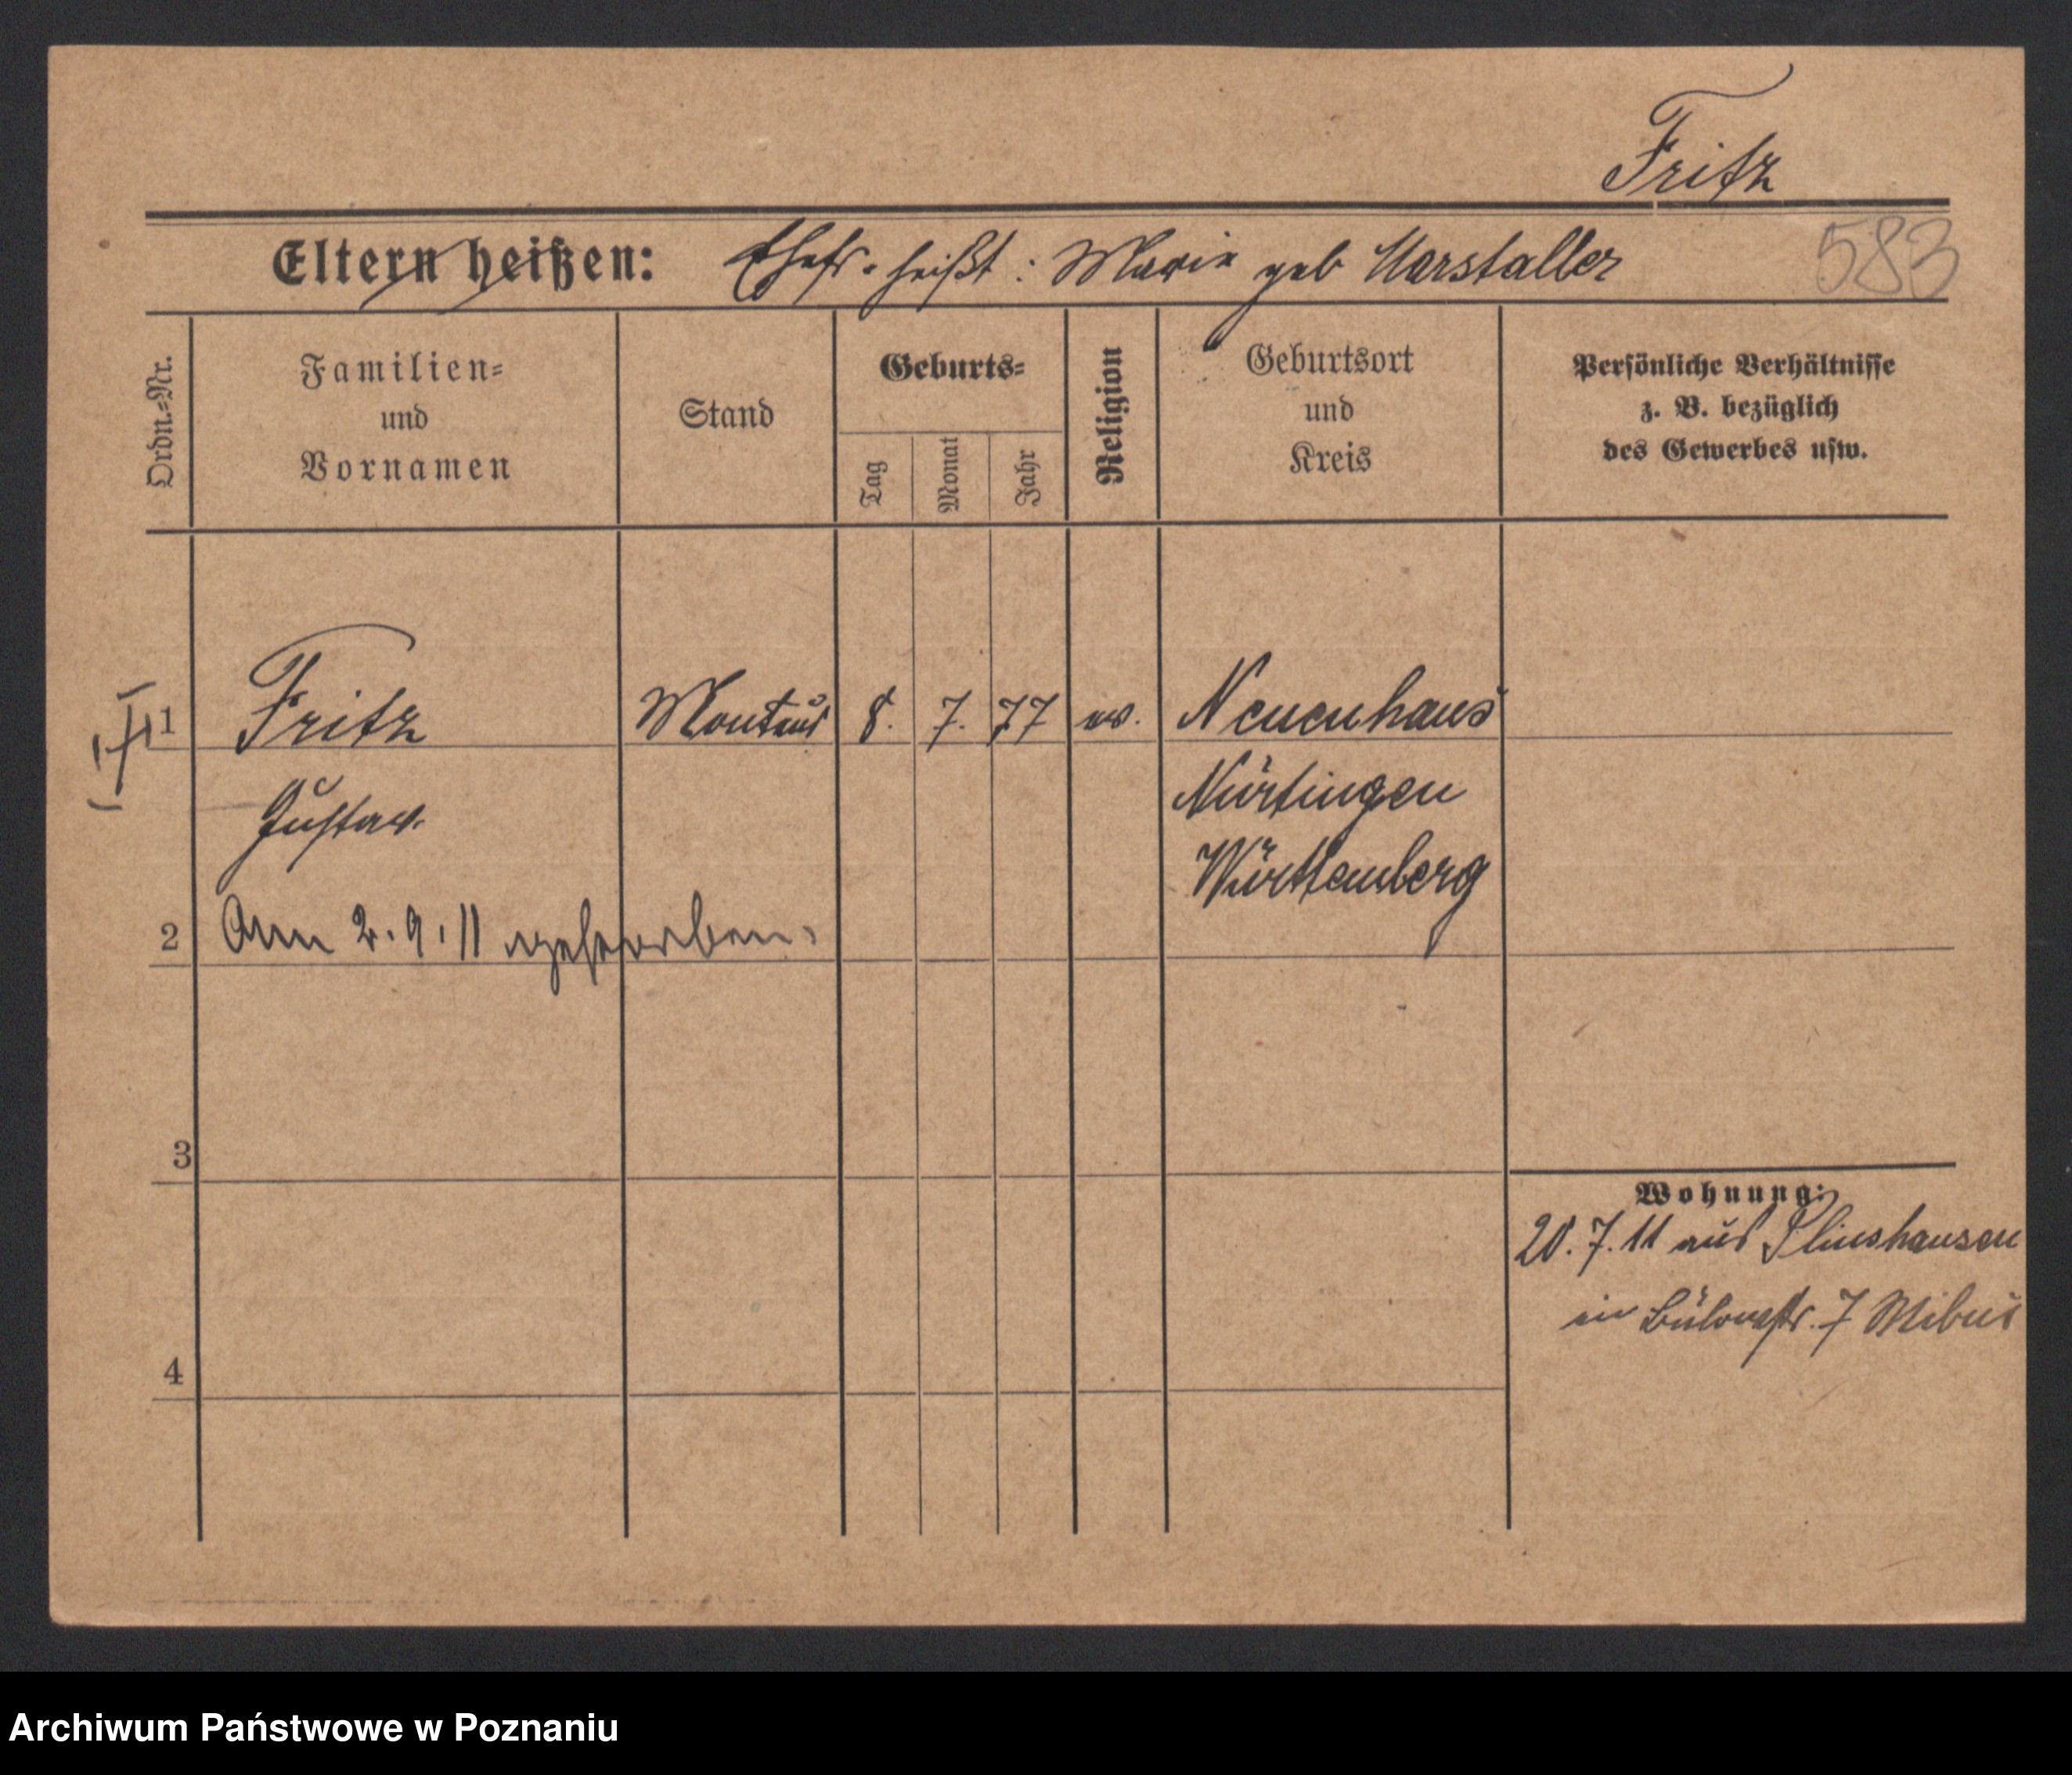 Fritz
Eltern heißen: Ehefr. heißt: Marie geb Marstaller
583
Ordn.=Nr.
Familien=
und
Vornamen
Stand
Geburts=
Tag
Monat
Jahr
Religion
Geburtsort
und
Kreis
Persönliche Verhältnisse
z. B. bezüglich
des Gewerbes usw.
1 Fritz Monteur 8. 7. 77 ev. Neuenhaus
Gustav Nürtingen
Württemberg
2 Am 2.9.11 gestorben.
3
Wohnung:
20.7.11 aus
in Bülowstr. 7 Mibus
4
Archiwum Państwowe w Poznaniu